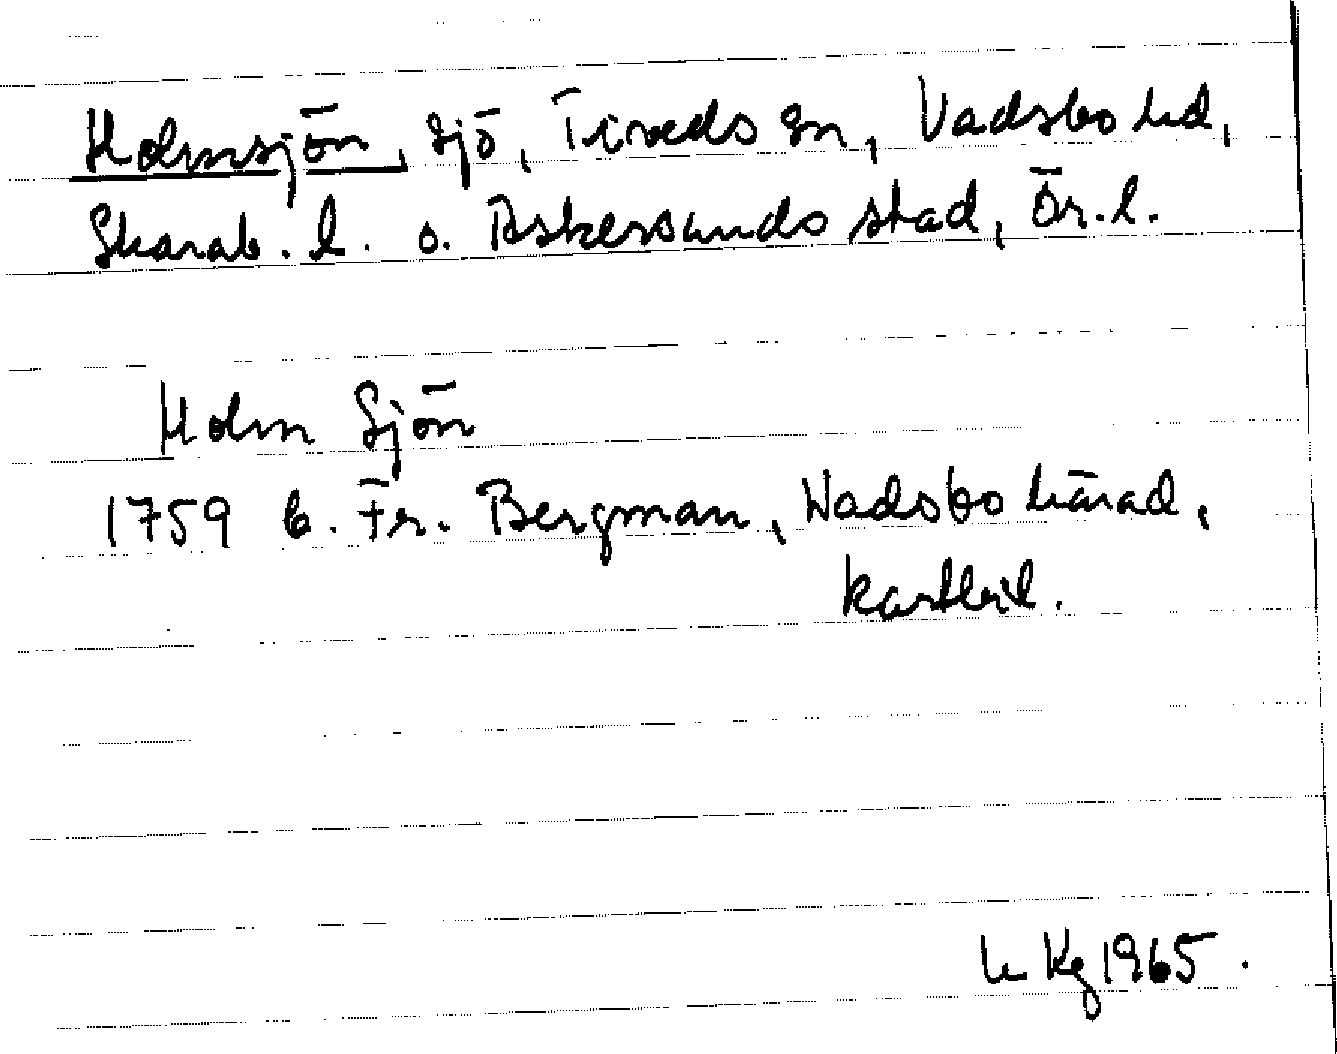 Holmsjön, sjö, Tiveds sn, Vadsbo hd,
Skarab. l. o. Askersunds stad, Ör. l.
Holm Sjön
1759 C. Fr. Bergman, Wadsbo härad,
kartbil.
Kg 1965.